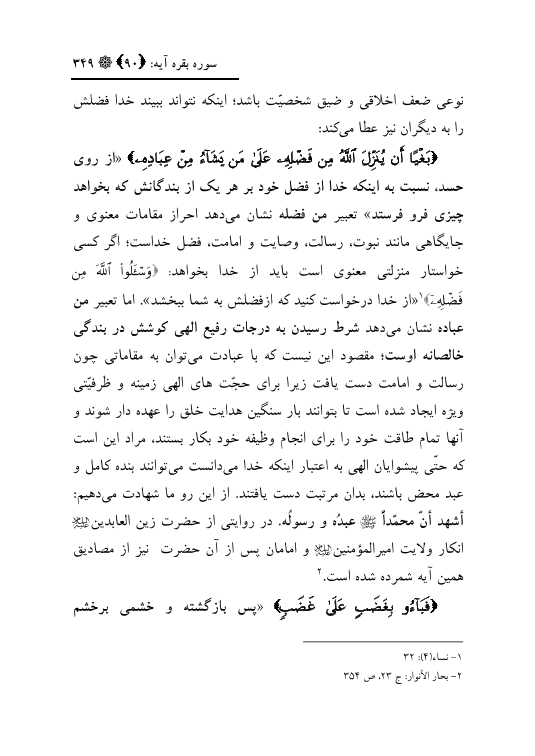 سوره بقره آیه: ﴿۹۰﴾ ۳۴۹
نوعی ضعف اخلاقی و ضیق شخصیّت باشد؛ اینکه نتواند ببیند خدا فضلش
را به دیگران نیز عطا می‌کند:
﴿بَغْيًا أَن يُنَزِّلَ ٱللَّهُ مِن فَضْلِهِۦ عَلَىٰ مَن يَشَآءُ مِنْ عِبَادِهِۦ﴾ «از روی
حسد، نسبت به اینکه خدا از فضل خود بر هر یک از بندگانش که بخواهد
چیزی فرو فرستد» تعبیر من فضله نشان می‌دهد احراز مقامات معنوی و
جایگاهی مانند نبوت، رسالت، وصایت و امامت، فضل خداست؛ اگر کسی
خواستار منزلتی معنوی است باید از خدا بخواهد: ﴿وَسْـَٔلُوا۟ ٱللَّهَ مِن
فَضْلِهِۦٓ﴾۱«از خدا درخواست کنید که ازفضلش به شما ببخشد». اما تعبیر من
عباده نشان می‌دهد شرط رسیدن به درجات رفیع الهی کوشش در بندگی
خالصانه اوست؛ مقصود این نیست که با عبادت می‌توان به مقاماتی چون
رسالت و امامت دست یافت زیرا برای حجّت های الهی زمینه و ظرفیّتی
ویژه ایجاد شده است تا بتوانند بار سنگین هدایت خلق را عهده دار شوند و
آنها تمام طاقت خود را برای انجام وظیفه خود بکار بستند، مراد این است
که حتّی پیشوایان الهی به اعتبار اینکه خدا می‌دانست می‌توانند بنده کامل و
عبد محض باشند، بدان مرتبت دست یافتند. از این رو ما شهادت می‌دهیم:
أشهد أنّ محمّداً ﷺ عبدُه و رسولُه. در روایتی از حضرت زین العابدین
انکار ولایت امیرالمؤمنین و امامان پس از آن حضرت نیز از مصادیق
همین آیه شمرده شده است.۲
﴿فَبَآءُو بِغَضَبٍ عَلَىٰ غَضَبٍ﴾ «پس بازگشته و خشمی برخشم
۱- نساء(۴): ۳۲
۲- بحار الأنوار: ج ۲۳، ص ۳۵۴